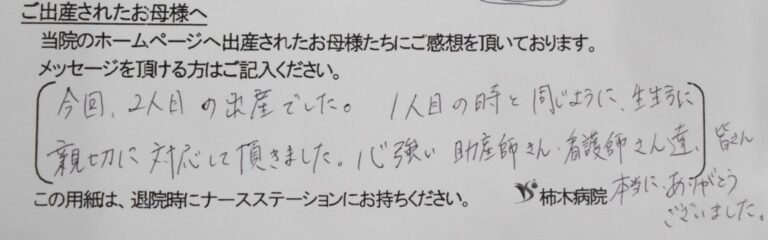 ご出産されたお母様へ
当院のホームページへ出産されたお母様たちにご感想を頂いております。
メッセージを頂ける方はご記入ください。
今回、2人目の出産でした。 1人目の時と同じように、
親切に対応して頂きました。心強い 助産師さん・看護師さん達、皆さん
本当に、ありがとう
ございました。
この用紙は、退院時にナースステーションにお持ちください。
柿木病院